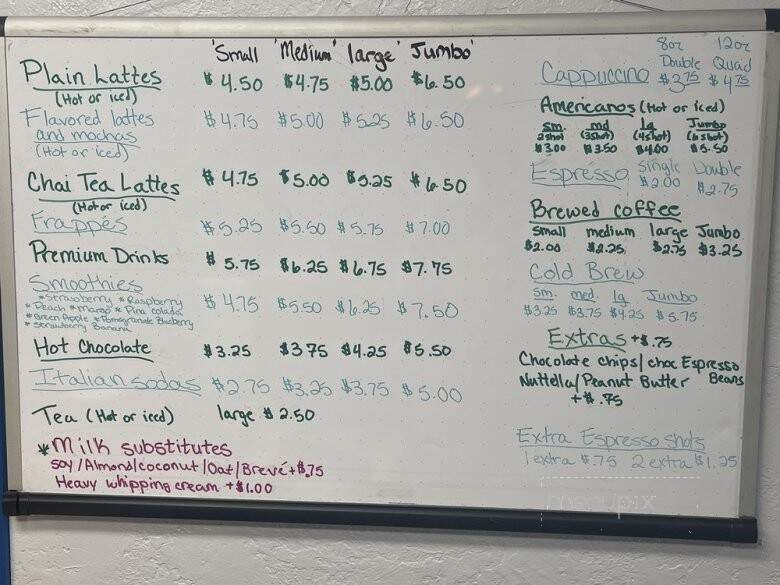 'Small' 'Medium' large' Jumbo'
Plain Lattes $4.50 $4.75 $5.00 $6.50
(Hot or iced)
Flavored lattes $4.75 $5.00 $5.25 $6.50
and mochas
(Hot or iced)
Chai Tea Lattes $4.75 $5.00 $5.25 $6.50
(Hot or iced)
Frappés $5.25 $5.50 $5.75 $7.00
Premium Drinks $5.75 $6.25 $6.75 $7.75
Smoothies $4.75 $5.50 $6.25 $7.50
*Strawberry *Raspberry
*Peach *Mango *Pina colada
*Green Apple *Pomegranate Blueberry
*Strawberry Banana
Hot Chocolate $3.25 $3.75 $4.25 $5.50
Italian sodas $2.75 $3.25 $3.75 $5.00
Tea (Hot or iced) large $2.50
*Milk substitutes
Soy/Almond/coconut/Oat/Brevé+$.75
Heavy whipping cream +$1.00
8oz 12oz
Double Quad
Cappuccino $3.75 $4.75
Americanos (Hot or iced)
Sm. md lg Jumbo
2shot (3shot) (4shot) (6shot)
$3.00 $3.50 $4.00 $5.50
Espresso Single Double
$2.00 $2.75
Brewed coffee
Small medium large Jumbo
$2.00 $2.25 $2.75 $3.25
Cold Brew
Sm. med. Lg Jumbo
$3.25 $3.75 $4.25 $5.75
Extras +$.75
Chocolate chips/choc Espresso
Nuttella/Peanut Butter Beans
+$.75
Extra Espresso shots
1 extra $.75 2 extra $1.25